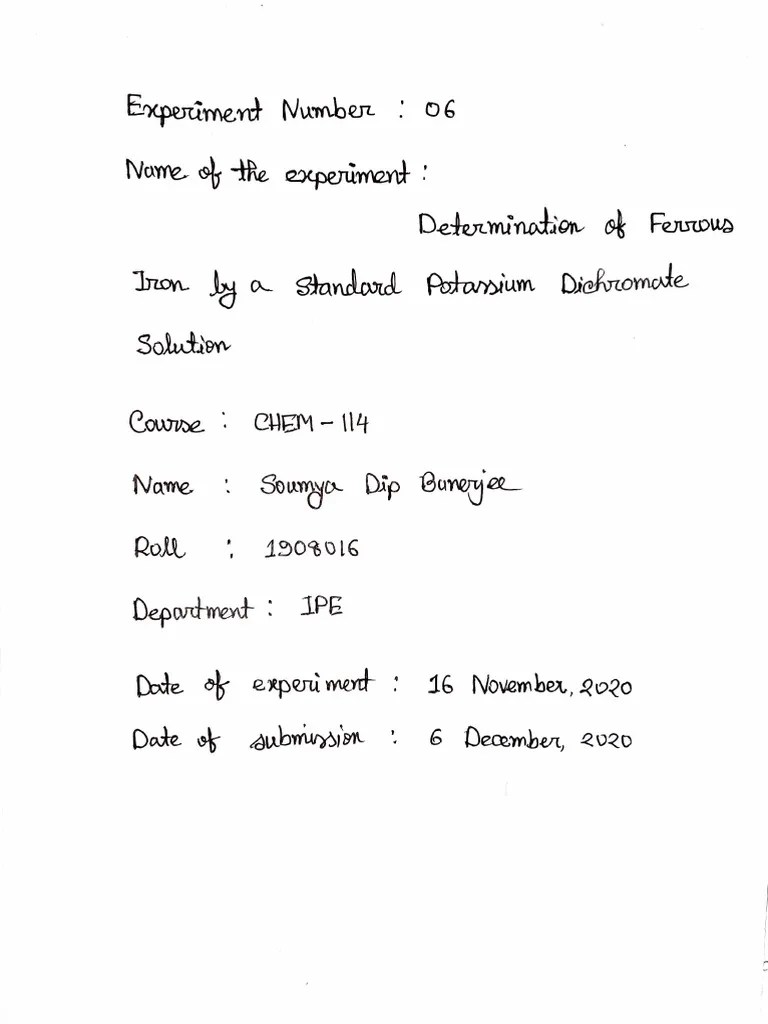 Experiment Number : 06
Name of the experiment :
Determination of Ferrous
Iron by a Standard Potassium Dichromate
Solution
Course : CHEM - 114
Name : Soumya Dip Banerjee
Roll : 1908016
Department : IPE
Date of experiment : 16 November, 2020
Date of submission : 6 December, 2020